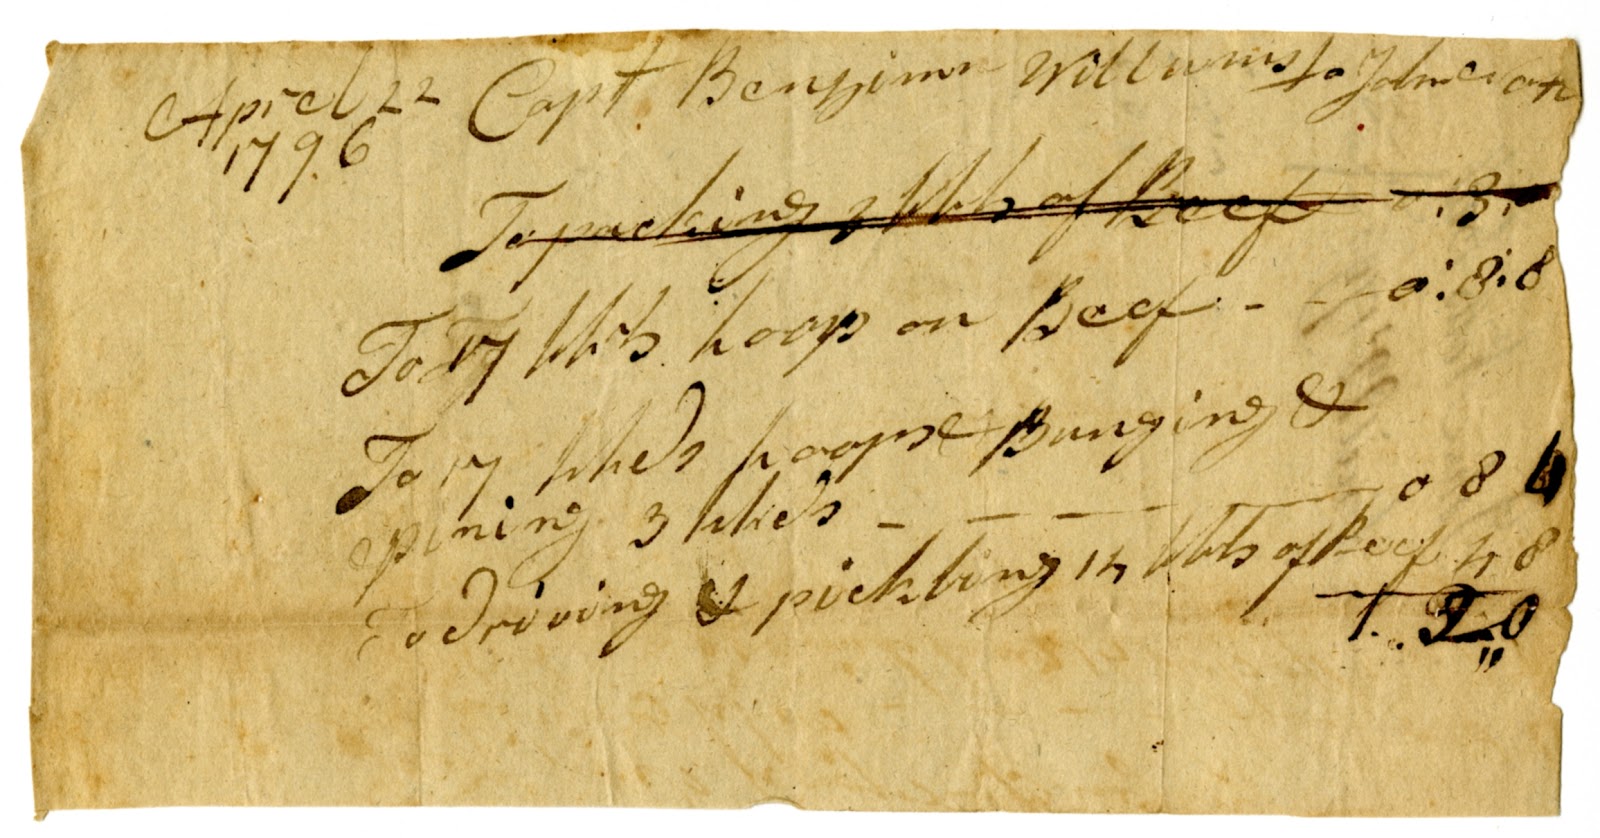 Aprel 22 Capt Benjimn Willums to John
1796
To packing 2 bbls of Beef 0:3:
To 17 bbls hoop on Beef - - 0:8:8
To 17 hhds hoops & Bunging &
pining 3 hhds - - - 0 8 4
To driving & pickling 14 bbls of Beef 4 8
1. 2,,0